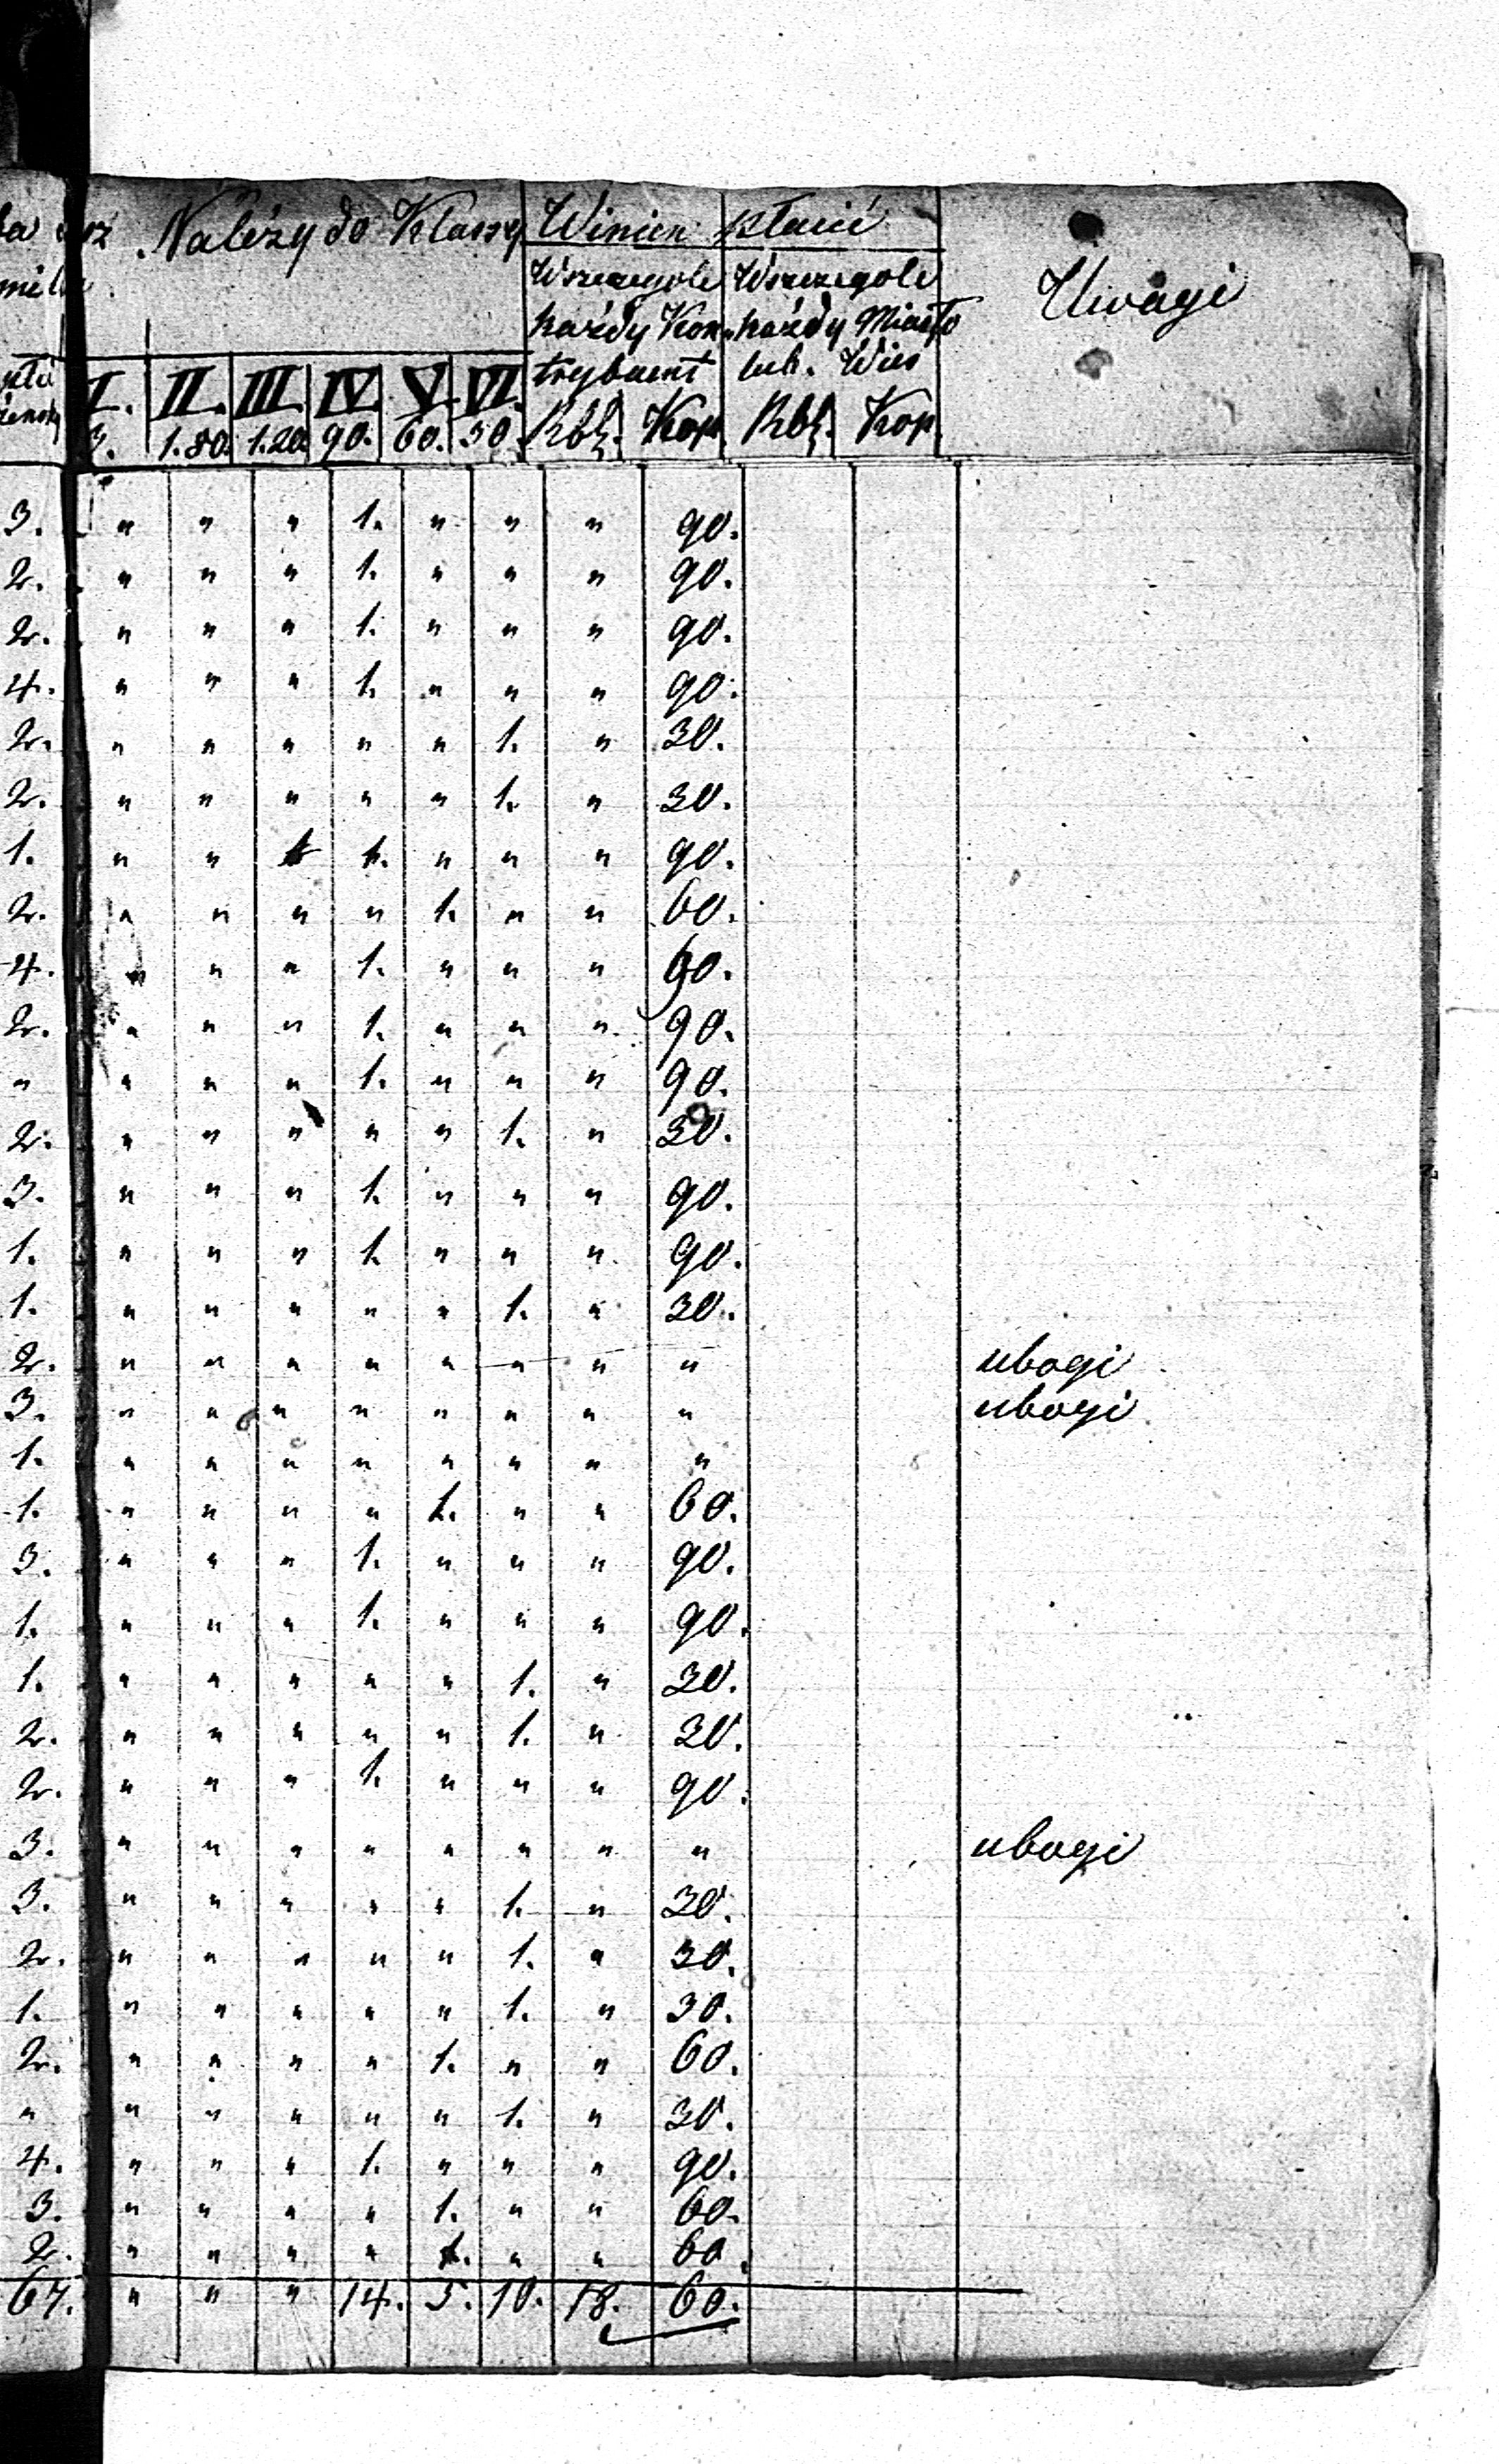 Należy do Klassy Winien płacić Uwagi
Wszczegole Wszczegole
każdy Kon„ każdy Miasto
trybuent lub. Wieś
I. II. III. IV. V. VI.
3. 1.80. 1.20. 90. 60. 30. Rbś. Kop. Rbś. Kop
3. " " " 1. " " " 90.
2. " " " 1. " " " 90.
2. " " " 1. " " " 90.
4. " " " 1. " " " 90.
2. " " " " " 1. " 30.
2. " " " " " 1. " 30.
1. " " 1. " " " 90.
2. " " " " 1. " " 60.
4. " " " 1. " " " 90.
2. " " " 1. " " " 90.
" " " " 1. " " " 90.
2. " " " " " 1. " 30.
3. " " " 1. " " " 90.
1. " " " 1. " " " 90.
1. " " " " " 1. " 30.
2. " " " " " " " " ubogi
3. " " " " " " " " ubogi
1. " " " " " " " "
1. " " " " 1. " " 60.
3. " " " 1. " " " 90.
1. " " " 1. " " " 90.
1. " " " " " 1. " 30.
2. " " " " " 1. " 30.
2. " " " 1. " " " 90.
3. " " " " " " " " ubogi
3. " " " " " 1. " 30.
2. " " " " " 1. " 30.
1. " " " " " 1. " 30.
2. " " " " 1. " " 60.
" " " " " " 1. " 30.
4. " " " 1. " " " 90.
3. " " " " 1. " " 60.
2. " " " " 1. " " 60.
67. " " " 14. 5. 10. 18. 60.